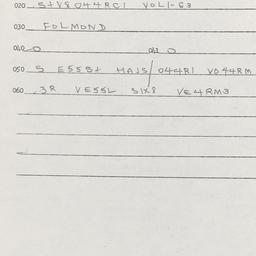 020 S+V8 044RCI VOL1-63
030 FOLMOND
040 O 042 O
050 S E555+ HAJS/044R1 V044RM
060 .3R VE55L SIX8 VE4RM3